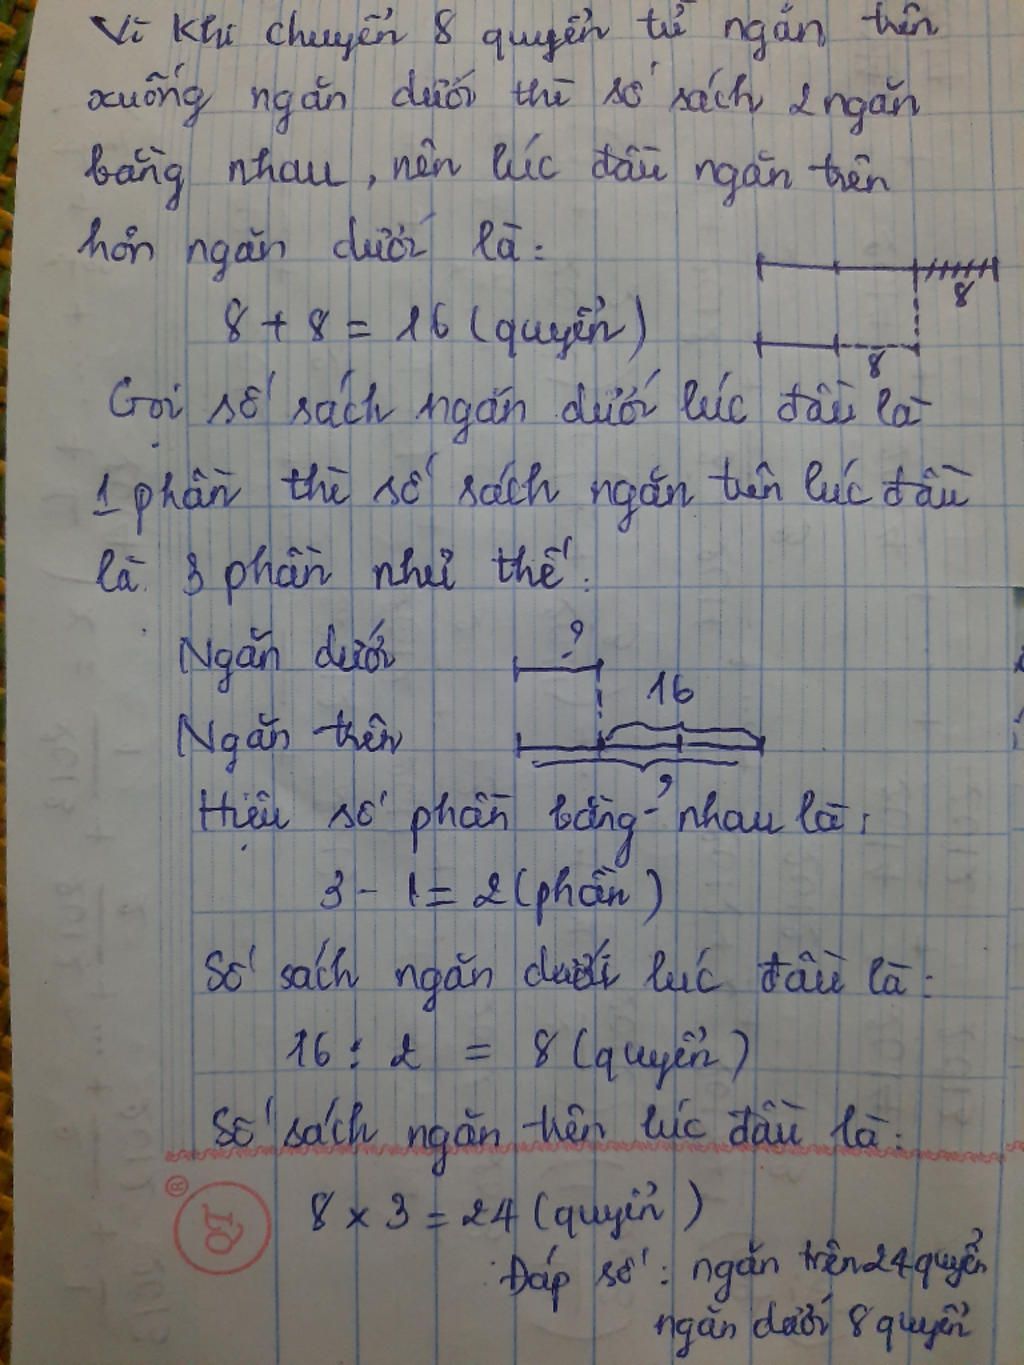 Vì khi chuyển 8 quyển từ ngăn trên
xuống ngăn dưới thì số sách 2 ngăn
bằng nhau, nên lúc đầu ngăn trên
hơn ngăn dưới là:
8
8 + 8 = 16 (quyển)
8
Gọi số sách ngăn dưới lúc đầu là
1 phần thì số sách ngăn trên lúc đầu
là 3 phần như thế.
Ngăn dưới ?
16
Ngăn trên
?
Hiệu số phần bằng nhau là:
3 - 1 = 2 (phần)
Số sách ngăn dưới lúc đầu là:
16 : 2 = 8 (quyển)
Số sách ngăn trên lúc đầu là:
8 x 3 = 24 (quyển)
Đáp số: ngăn trên 24 quyển
ngăn dưới 8 quyển